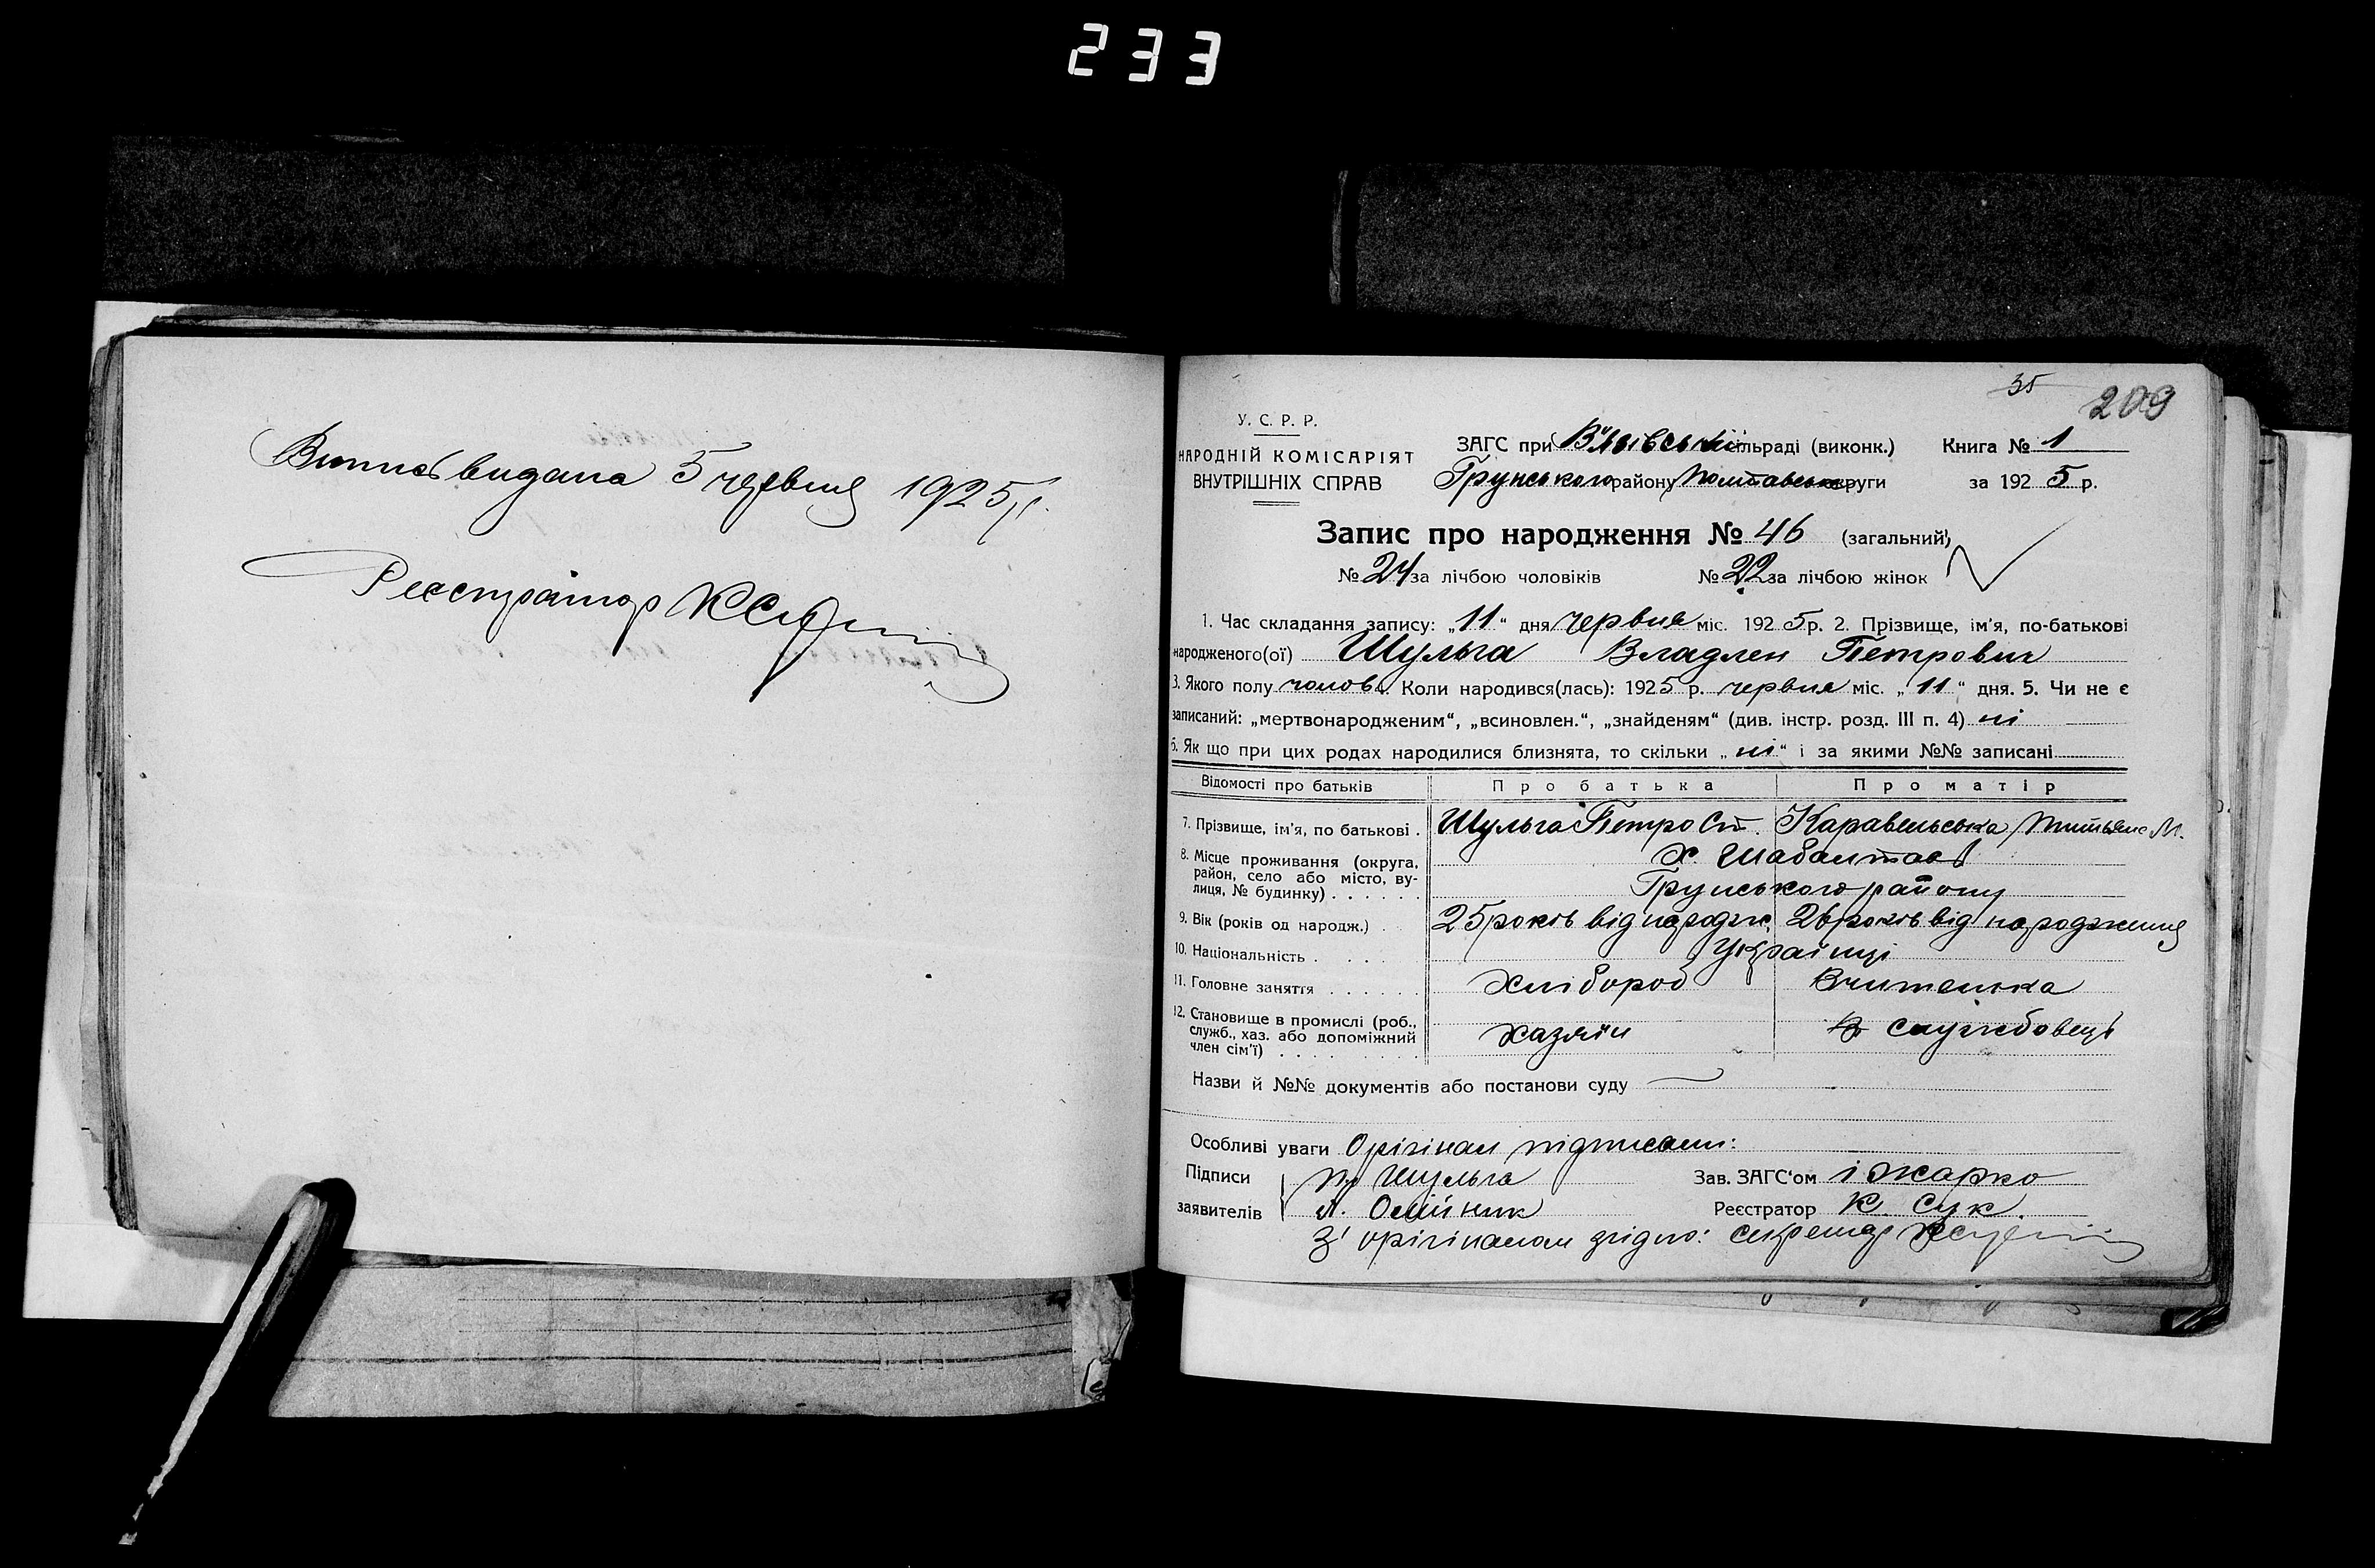 233
Випис видана 5 червня 1925 р.
Реєстратор К Сук
35 209
У. С. Р. Р.
НАРОДНІЙ КОМІСАРІЯТ
ВНУТРІШНІХ СПРАВ
ЗАГС при сільраді (виконк.) Книга № 1
Грунського району Полтавськ округи за 1925 р.
Запис про народження № 46 (загальний)
№ 24 за лічбою чоловіків № 22 за лічбою жінок
1. Час складання запису: „11“ дня червня міс. 1925 р. 2. Прізвище, ім'я, по-батькові
народженого(ої) Шульга Владлен Петрович
3. Якого полу чолов 4. Коли народився(лась): 1925 р. червня міс. „11“ дня. 5. Чи не є
записаний: „мертвонародженим“, „всиновлен.“, „знайденям“ (див. інстр. розд. III п. 4) ні
6. Як що при цих родах народилися близнята, то скільки „ні“ і за якими №№ записані
Відомості про батьків Про батька Про матір
7. Прізвище, ім'я, по батькові . Шульга Петро Ст. Каравельська Титьяна М.
8. Місце проживання (округа, район, село або місто, вулиця, № будинку) . . . . . . х. Шабалтаєв
Грунського району
9. Вік (років од народж.) . 25 років від народж. 26 років від народження
10. Національність . . . . Українці
11. Головне заняття . . . . . . Хлібороб Вчителька
12. Становище в промислі (роб., служб., хаз. або допоміжний член сім'ї) . . . . . . хазяїн службовець
Назви й №№ документів або постанови суду
Особливі уваги Орігінал підписали:
Підписи П. Шульга Зав. ЗАГС'ом і Жарко
заявителів Л. Олійник Реєстратор К. Сук.
З' орігіналом згідно: секретар КСук